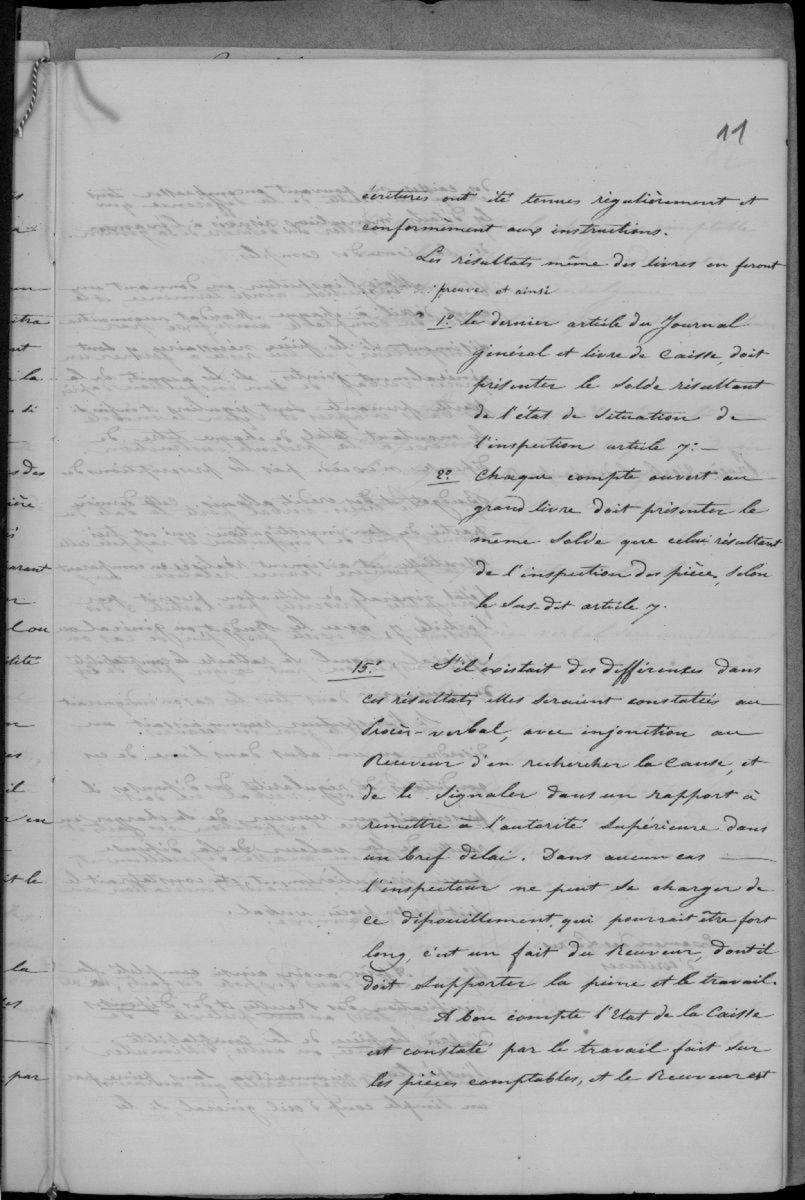 11
écritures ont été tenues régulièrement et
conformément aux instructions.
Les résultats même des livres en feront
preuve et ainsi
1º le dernier article du Journal
général et livre de Caisse, doit
présenter le solde résultant
de l'état de situation de
l'inspection article 7: —
2º Chaque compte ouvert au
grand livre doit présenter le
même solde que celui résultant
de l'inspection des pièces, selon
le sus-dit article 7.
15º S'il existait des différences dans
ces résultats, elles seraient constatées au
Procès-verbal, avec injonction au
Receveur d'en rechercher la cause, et
de le signaler dans un rapport à
remettre à l'autorité supérieure dans
un bref délai. Dans aucun cas —
l'inspecteur ne peut se charger de
ce dépouillement, qui pourrait être fort
long, c'est un fait du Receveur, dont il
doit supporter la peine et le travail.
A bon compte l'Etat de la Caisse
est constaté par le travail fait sur
les pièces comptables, et le Receveur est